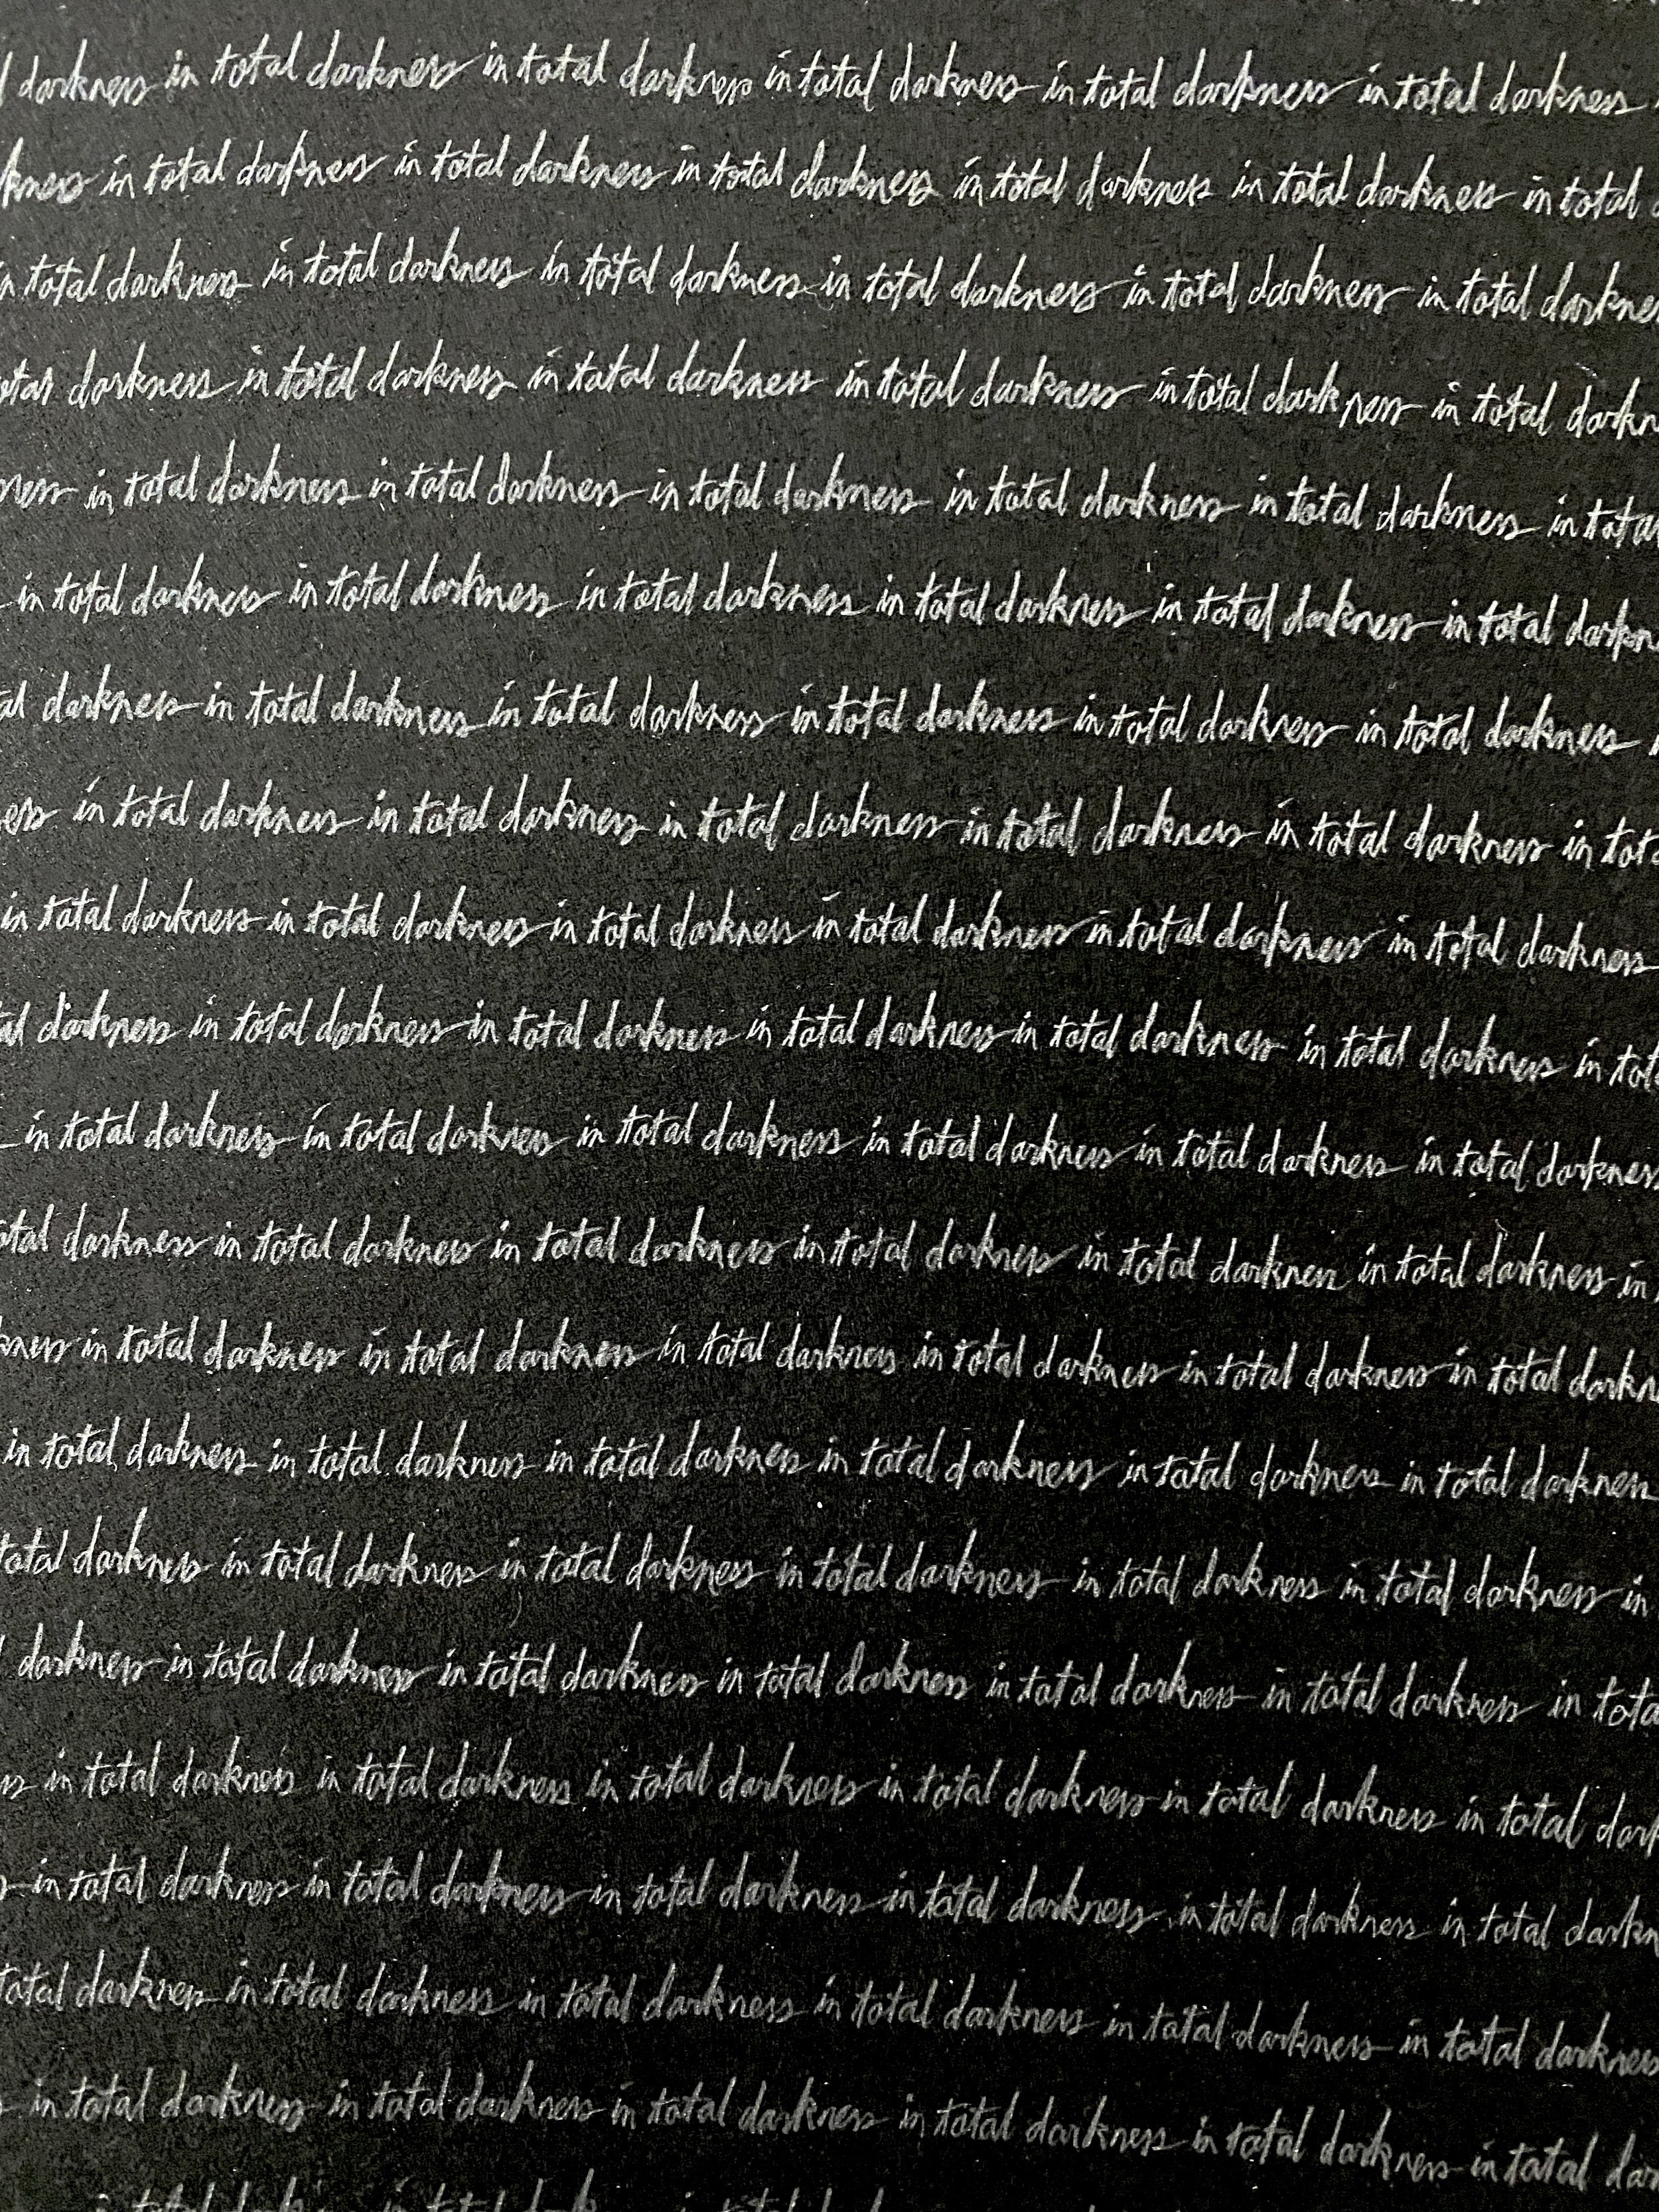 darkness in total darkness in total darkness in total darkness in total darkness in total darkness
in total darkness in total darkness in total darkness in total darkness in total darkness in total
in total darkness in total darkness in total darkness in total darkness in total darkness in total
darkness in total darkness in total darkness in total darkness in total darkness in total
in total darkness in total darkness in total darkness in total darkness in total darkness in
in total darkness in total darkness in total darkness in total darkness in total darkness in total
darkness in total darkness in total darkness in total darkness in total darkness in total darkness
in total darkness in total darkness in total darkness in total darkness in total darkness in
in total darkness in total darkness in total darkness in total darkness in total darkness in total darkness
darkness in total darkness in total darkness in total darkness in total darkness in total darkness in
in total darkness in total darkness in total darkness in total darkness in total darkness in total darkness
total darkness in total darkness in total darkness in total darkness in total darkness in total darkness in
in total darkness in total darkness in total darkness in total darkness in total darkness in total
in total darkness in total darkness in total darkness in total darkness in total darkness in total darkness
total darkness in total darkness in total darkness in total darkness in total darkness in total darkness in
darkness in total darkness in total darkness in total darkness in total darkness in total darkness in
in total darkness in total darkness in total darkness in total darkness in total darkness in total
in total darkness in total darkness in total darkness in total darkness in total darkness in total
total darkness in total darkness in total darkness in total darkness in total darkness in total darkness
in total darkness in total darkness in total darkness in total darkness in total darkness in total